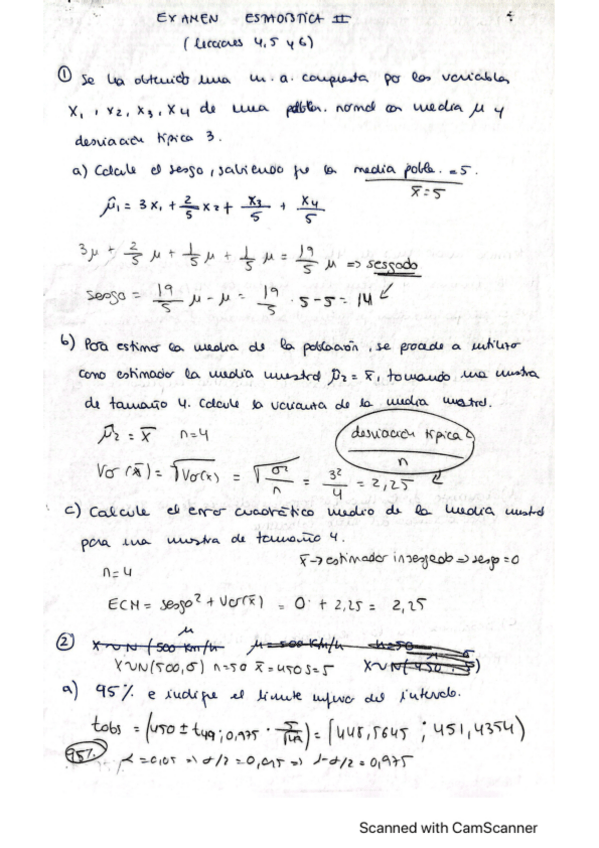 EXAMEN ESTADÍSTICA II
(Lecciones 4, 5 y 6)
① Se ha obtenido una m.a. compuesta por las variables
X₁, X₂, X₃, X₄ de una poblac. normal con media μ y
desviación típica 3.
a) Calcule el sesgo, sabiendo que la media pobla. = 5.
x̄ = 5
μ̂₁ = 3X₁ + 2/5 X₂ + X₃/5 + X₄/5
3μ + 2/5 μ + 1/5 μ + 1/5 μ = 19/5 μ => sesgado
sesgo = 19/5 μ - μ = 19/5 · 5 - 5 = 14
b) Para estimar la media de la población, se procede a utilizar
como estimador la media muestral μ̂₂ = x̄, tomando una muestra
de tamaño 4. Calcule la varianza de la media muestral.
μ̂₂ = x̄ n=4
desviación típica²/n
Var (x̄) = √Var(x) = √σ²/n = 3²/4 = 2,25
c) Calcule el error cuadrático medio de la media muestral
para una muestra de tamaño 4.
x̄ → estimador insesgado => sesgo = 0
n=4
ECM = sesgo² + Var(x̄) = 0 + 2,25 = 2,25
② X~N(500 Km/h μ = 500 Km/h n=50
X~N(500,σ) n=50 x̄=450 s=5 X~N(450, 5)
a) 95% e indique el límite inferior del intervalo.
tobs = (450 ± t49;0,975 · 5/√49) = [448,5645 ; 451,4354)
95% α = 0,05 => α/2 = 0,025 => 1-α/2 = 0,975
Scanned with CamScanner